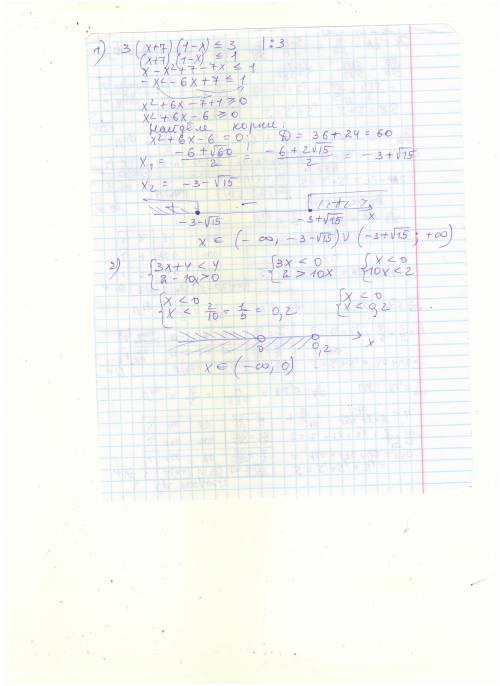 1) 3(x+7)(1-x) ≤ 3 | :3
(x+7)(1-x) ≤ 1
x-x²+7-7x ≤ 1
-x²-6x+7 ≤ 1
x²+6x-7+1 ≥ 0
x²+6x-6 ≥ 0
Найдем корни:
x²+6x-6=0, D = 36+24=60
x₁ = (-6+√60)/2 = (-6+2√15)/2 = -3+√15
x₂ = -3-√15
+ - +
-3-√15 -3+√15 x
x ∈ (-∞, -3-√15) ∪ (-3+√15; +∞)
2) {3x+4<4 {3x<0 {x<0
{2-10x>0 {2>10x {10x<2
{x<0 {x<0
{x< 2/10 = 1/5 = 0,2 {x<0,2
0 0,2 x
x ∈ (-∞, 0)